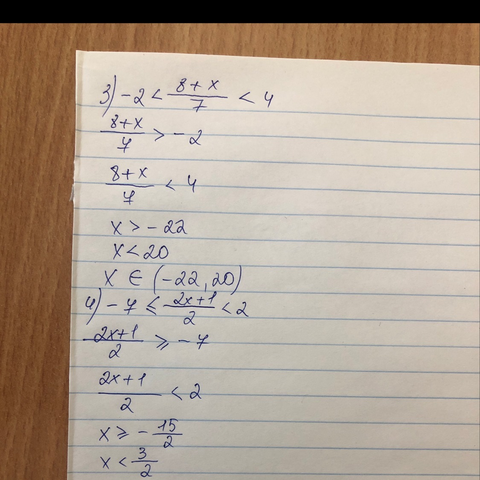 3) -2 < (8+x)/7 < 4
(8+x)/7 > -2
(8+x)/7 < 4
x > -22
x < 20
x ∈ (-22, 20)
4) -7 ≤ (2x+1)/2 < 2
(2x+1)/2 ≥ -7
(2x+1)/2 < 2
x ≥ -15/2
x < 3/2